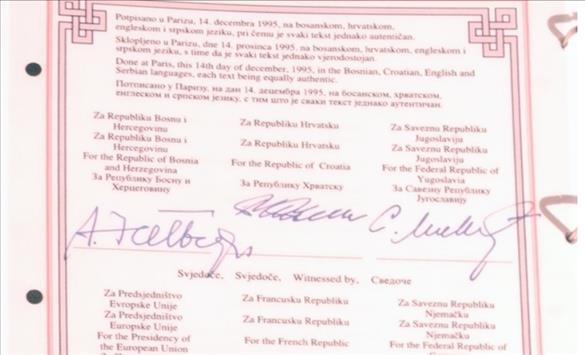 Potpisano u Parizu, 14. decembra 1995, na bosanskom, hrvatskom,
engleskom i srpskom jeziku, pri čemu je svaki tekst jednako autentičan.
Sklopljeno u Parizu, dne 14. prosinca 1995, na bosanskom, hrvatskom, engleskom i
srpskom jeziku, s time da je svaki tekst jednako vjerodostojan.
Done at Paris, this 14th day of december, 1995, in the Bosnian, Croatian, English and
Serbian languages, each text being equally authentic.
Потписано у Паризу, на дан 14. децембра 1995, на босанском, хрватском,
енглеском и српском језику, с тим што је сваки текст једнако аутентичан.
Za Republiku Bosnu i
Hercegovinu
Za Republiku Bosnu i
Hercegovinu
For the Republic of Bosnia
and Herzegovina
За Републику Босну и
Херцеговину
Za Republiku Hrvatsku
Za Republiku Hrvatsku
For the Republic of Croatia
За Републику Хрватску
Za Saveznu Republiku
Jugoslaviju
Za Saveznu Republiku
Jugoslaviju
For the Federal Republic of
Yugoslavia
За Савезну Републику
Југославију
Svjedoče, Svjedoče, Witnessed by, Сведоче
Za Predsjedništvo
Evropske Unije
Za Predsjedništvo
Europske Unije
For the Presidency of
the European Union
Za Francusku Republiku
Za Francusku Republiku
For the French Republic
Za Saveznu Republiku
Njemačku
Za Saveznu Republiku
Njemačku
For the Federal Republic of